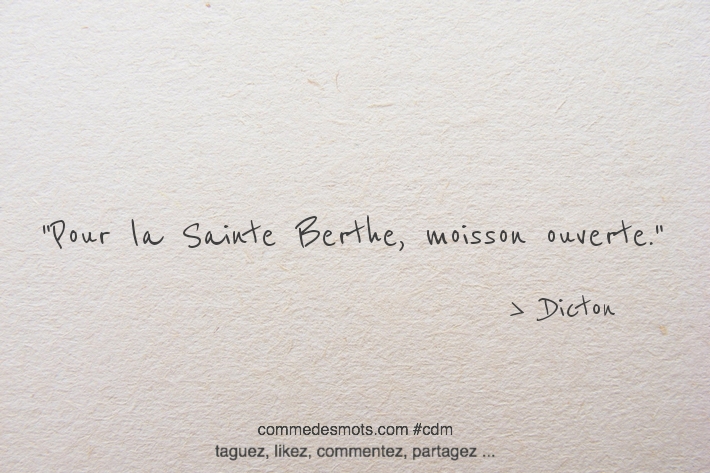 "Pour la Sainte Berthe, moisson ouverte."
> Dicton
commedesmots.com #cdm
taguez, likez, commentez, partagez ...